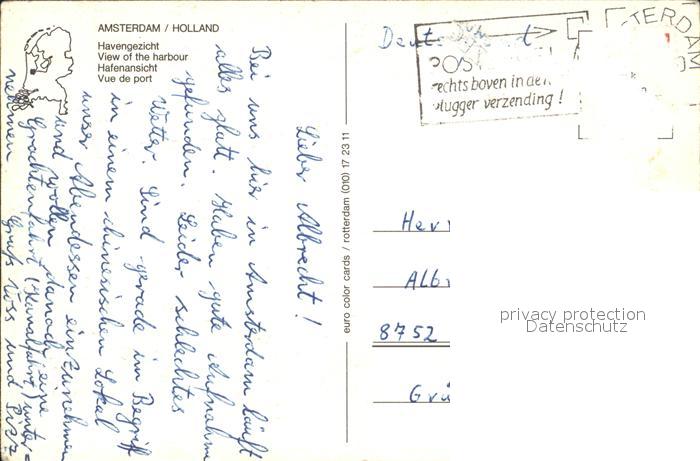 AMSTERDAM / HOLLAND
Havengezicht
View of the harbour
Hafenansicht
Vue de port
Lieber Albrecht!
Bei uns hier in Amsterdam läuft
alles glatt. Haben gute Aufnahme
gefunden. Leider schlechtes
Wetter. Sind gerade im Begriff
in einem chinesischen Lokal
unser Abendessen einzunehmen
und wollen danach eine
Grachtenfahrt (Kanalfahrt) unter=
nehmen
Gruß und
euro color cards / rotterdam (010) 17 23 11
TERDAM
POS
rechts boven in de
vlugger verzending!
Deut
Her
Alb
8752
Grü
privacy protection
Datenschutz